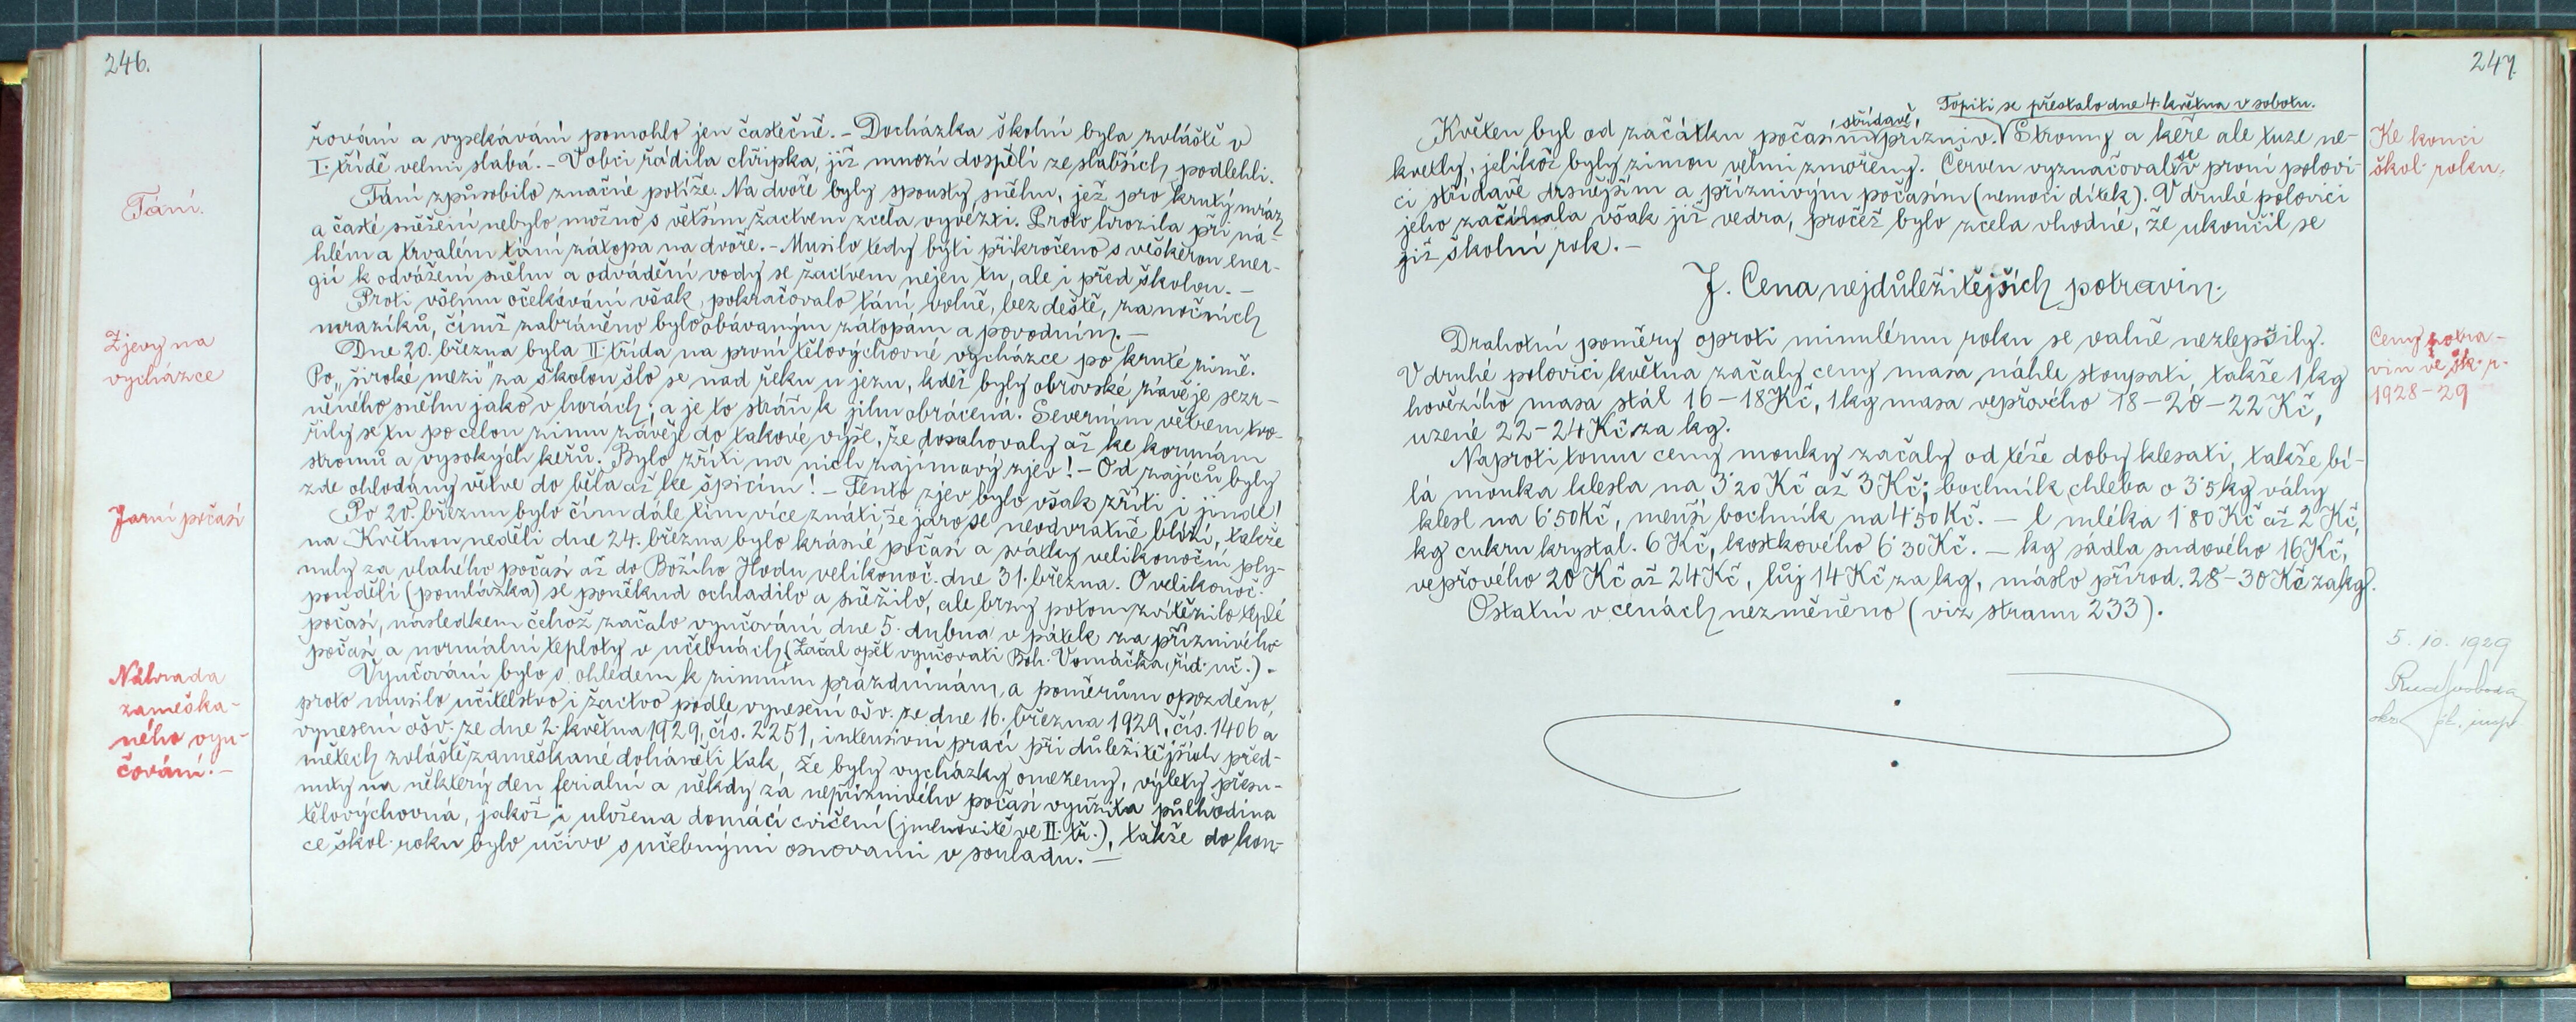 246.
řování a vysekávání pomohlo jen částečně. – Docházka školní byla zvláště v
I. třídě velmi slabá. – V obci řádila chřipka, jíž mnozí dospělí ze slabších podlehli.
Tání.
Tání způsobilo značné potíže. Na dvoře byly spousty sněhu, jež pro krutý mráz
a časté sněžení nebylo možno s větším žactvem zcela vyvézti. Proto hrozila při ná-
hlém a trvalém tání zátopa na dvoře. – Musilo tedy býti přikročeno s veškerou ener-
gií k odvážení sněhu a odvádění vody se žactvem nejen tu, ale i před školou. –
Proti všemu očekávání však, pokračovalo tání, volně, bez deště, za nočních
mrazíků, čímž zabráněno bylo obávaným zátopám a povodním. –
Zjevy na
vycházce
Dne 20. března byla II. třída na první tělovýchovné vycházce po kruté zimě.
Po „široké mezi" za školou šlo se nad řeku u jezu, kdež byly obrovské závěje sezr-
něného sněhu jako v horách, a je to stráň k jihu obrácená. Severním větrem tvo-
řily se tu po celou zimu závěje do takové výše, že dosahovaly až ke korunám
stromů a vysokých keřů. Bylo zříti na nich zajímavý zjev! – Od zajíců byly
zde ohlodány větve do běla až ke špicím! – Tento zjev bylo však zříti i jinde!
Jarní počasí
Po 20. březnu bylo čím dále tím více znáti že jaro se neodvratně blíží, takže
na Květnou neděli dne 24. března bylo krásné počasí a svátky velikonoční ply-
nuly za vlahého počasí až do Božího Hodu velikonoč. dne 31. března. O velikonoč.
pondělí (pomlázka) se poněkud ochladilo a sněžilo, ale brzy potom zvítězilo teplé
počasí, následkem čehož začalo vyučování dne 5. dubna v pátek za příznivého
počasí a normální teploty v učebnách. (Začal opět vyučovati Boh. Vomáčka, říd. uč.). –
Náhrada
zameška-
ného vyu-
čování. –
Vyučování bylo s ohledem k zimním prázdninám, a poměrům opožděno,
proto musilo učitelstvo i žactvo podle vynesení ošv. ze dne 16. března 1929, čís. 1406 a
vynesení ošv. ze dne 2. května 1929, čís. 2251, intensivní prací při důležitějších před-
mětech zvláště zameškané doháněti tak, že byly vycházky omezeny, výlety přesu-
nuty na některý den feriální a někdy za nepříznivého počasí využita půlhodina
tělovýchovná, jakož i uložena domácí cvičení (jmenovitě ve II. tř.), takže do kon-
ce škol. roku bylo učivo s učebnými osnovami v souladu. –
247.
Topiti se přestalo dne 4. května v sobotu.
střídavě,
Květen byl od začátku počasím přízniv. V Stromy a keře ale tuze ne-
Ke konci
škol. roku.
kvetly, jelikož byly zimou velmi zmořeny. Červen vyznačoval se v první polovi-
ci střídavě drsnějším a příznivým počasím (nemoci dítek). V druhé polovici
jeho začínala však již vedra, pročež bylo zcela vhodné, že ukončil se
již školní rok. –
J. Cena nejdůležitějších potravin.
Ceny potra-
vin ve šk. r.
1928–29
Drahotní poměry oproti minulému roku se valně nezlepšily.
V druhé polovici května začaly ceny masa náhle stoupati, takže 1 kg
hovězího masa stál 16–18 Kč, 1 kg masa vepřového 18–20–22 Kč,
uzené 22–24 Kč za kg.
Naproti tomu ceny mouky začaly od téže doby klesati, takže bí-
lá mouka klesla na 3˙20 Kč až 3 Kč; bochník chleba o 3˙5 kg váhy
klesl na 6˙50 Kč, menší bochník na 4˙50 Kč. – l mléka 1˙80 Kč až 2 Kč,
kg cukru krystal. 6 Kč, kostkového 6˙30 Kč. – kg sádla sudového 16 Kč,
vepřového 20 Kč až 24 Kč, lůj 14 Kč za kg, máslo přírod. 28–30 Kč za kg.
Ostatní v cenách nezměněno (viz stranu 233).
5. 10. 1929
Rud. Svoboda
okr. šk. insp.